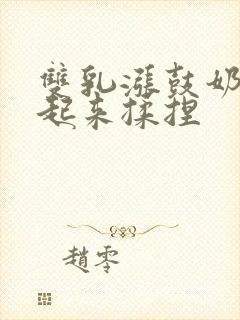 雙乳漲鼓奶
起來揉捏
趙零